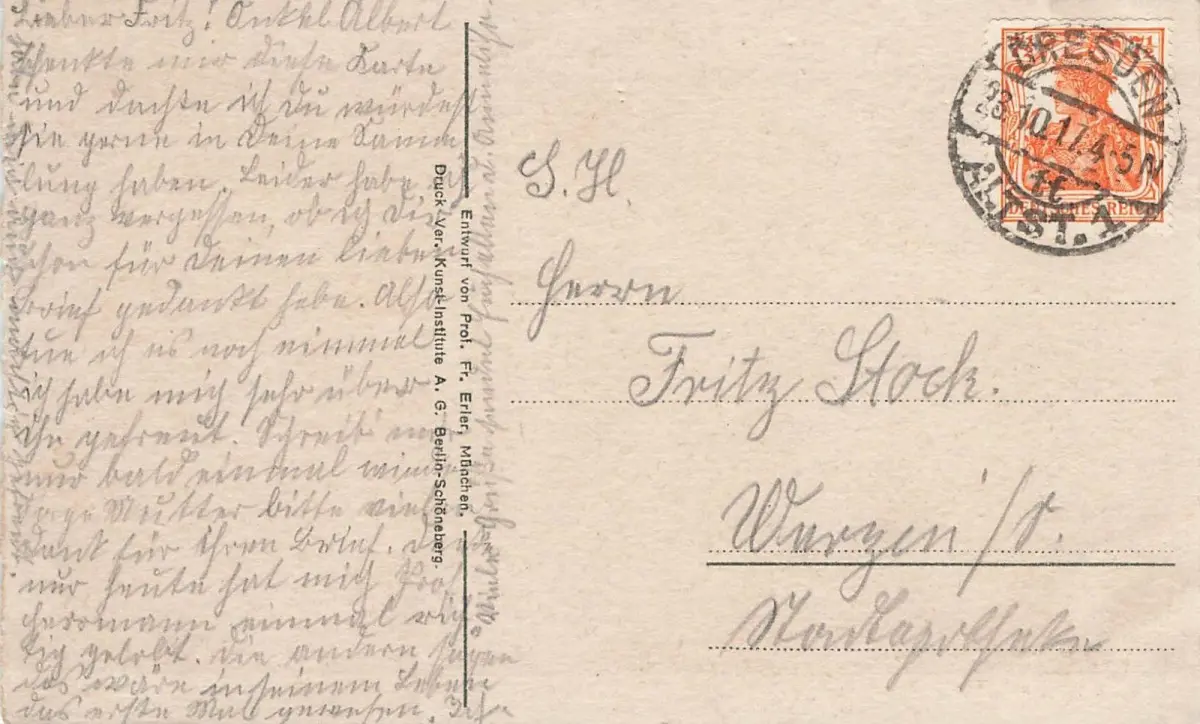 Lieber Fritz! Onkel Albert
schenkte mir diese Karte
und dachte ich Du würdest
sie gerne in Deine Samm
lung haben. Leider habe ich
ganz vergessen, ob ich Dir
schon für Deinen lieben
Brief gedankt habe. Also
tue ich es noch einmal
ich habe mich sehr über
ihn gefreut. Schreib mir
nur bald einmal wieder
Sage Mutter bitte vielen
Dank für ihren Brief. Denk
nur heute hat mich Prof
Herrmann einmal rich
tig gelobt. Die andern sagen
das wäre in seinem Leben
das erste Mal gewesen.
Entwurf von Prof. Fr. Erler, München.
Druck Ver. Kunst-Institute A. G. Berlin-Schöneberg.
DRESDEN
28.10.17. 4-5N
ALTST. 1
DEUTSCHES REICH
S. H.
Herrn
Fritz Stock.
Wurzen i/S.
Stadtapotheke